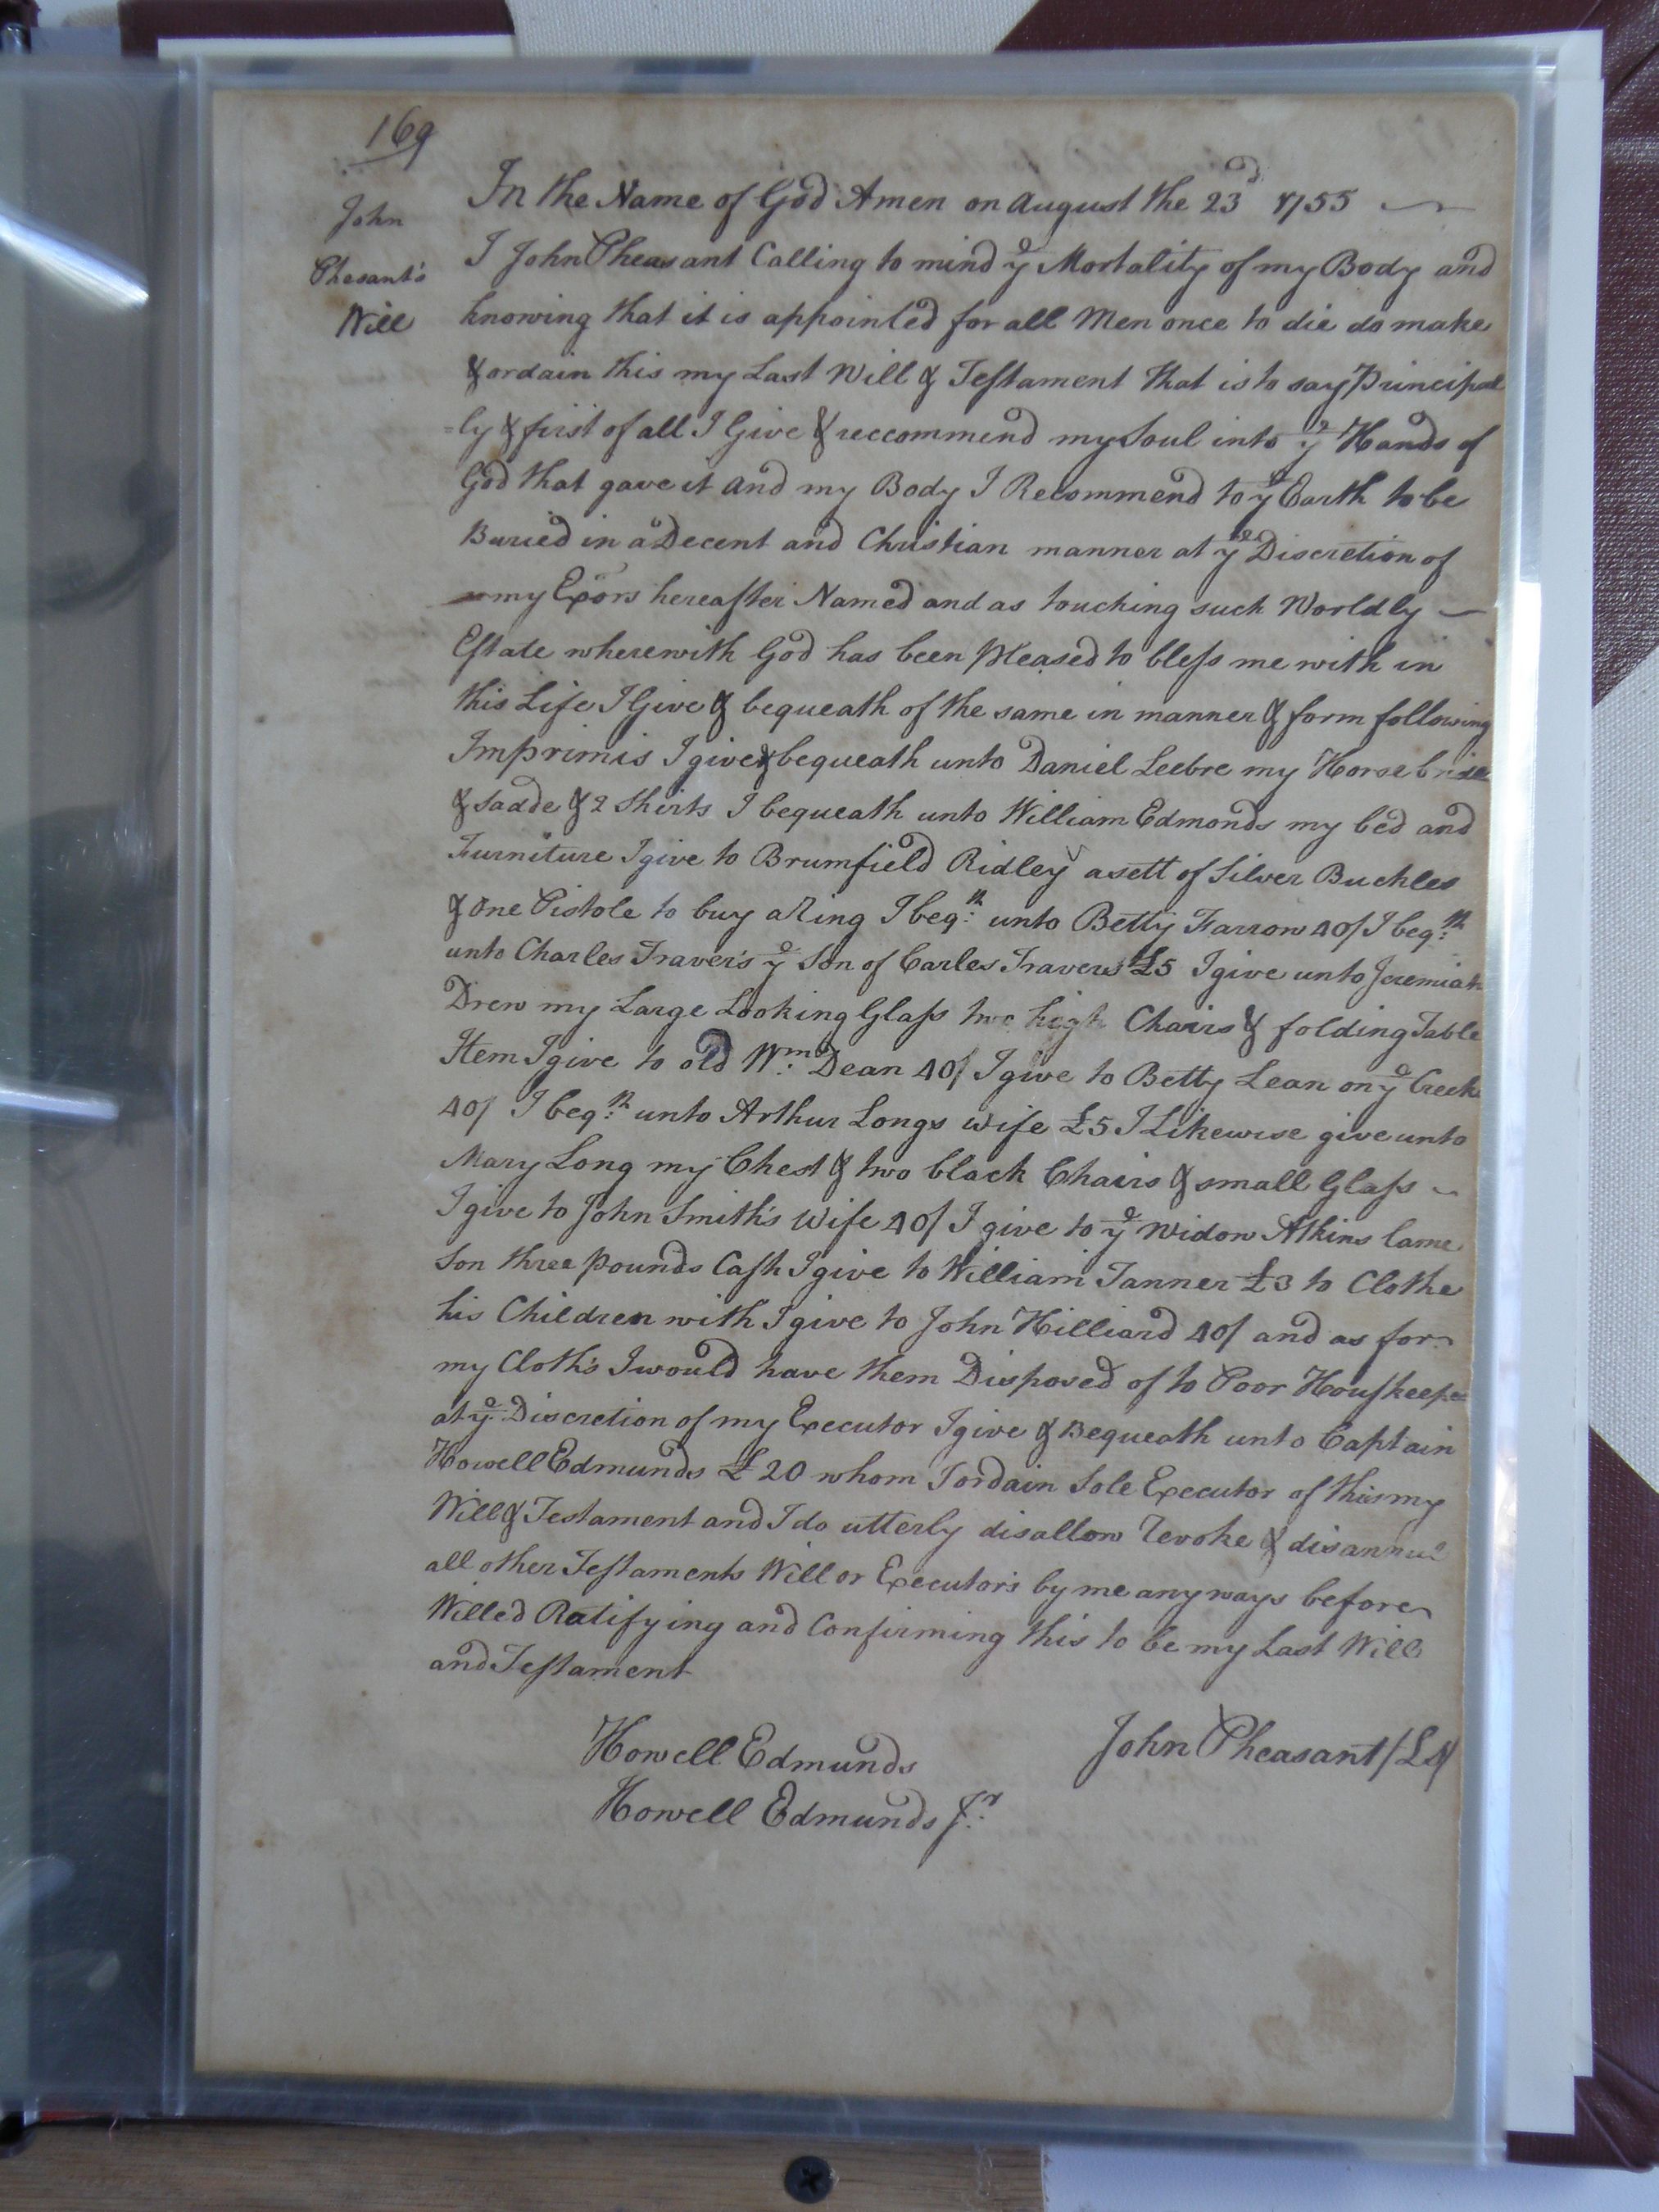 169
John
Phesant's
Will
In the Name of God Amen on August the 23d 1755
I John Pheasant Calling to mind ye Mortality of my Body and
knowing that it is appointed for all Men once to die do make
& ordain this my Last Will & Testament that is to say Principal
=ly & first of all I Give & reccommend my Soul into ye Hands of
God that gave it and my Body I Recommend to ye Earth to be
Buried in a Decent and Christian manner at ye Discretion of
my Exors hereafter Named and as touching such Worldly
Estate wherewith God has been pleased to bless me with in
this Life I Give & bequeath of the same in manner & form following
Imprimis I give & bequeath unto Daniel Leebre my Horse bridle
& Sadde & 2 Shirts I bequeath unto William Edmonds my bed and
Furniture I give to Brumfield Ridley a sett of Silver Buckles
& one Pistole to buy a Ring I beqth unto Betty Farrow 40/ I beqth
unto Charles Travers ye Son of Carles Travers £5 I give unto Jeremiah
Drew my Large Looking Glass two high Chairs & folding Table
Item I give to old Wm Dean 40/ I give to Betty Lean on ye Creek
40/ I beqth unto Arthur Longs wife £5 I Likewise give unto
Mary Long my Chest & two black Chairs & small Glass
I give to John Smith's Wife 40/ I give to ye Widow Atkins lame
Son three pounds Cash I give to William Tanner £3 to Clothe
his Children with I give to John Hilliard 40/ and as for
my Cloth's I would have them Disposed of to Poor Houskeepe
at ye Discretion of my Executor I give & Bequeath unto Captain
Howell Edmunds £20 whom I ordain Sole Executor of this my
Will & Testament and I do utterly disallow revoke & disannul
all other Testaments Will or Executors by me any ways before
Willed Ratifying and Confirming this to be my Last Will
and Testament
John Pheasant /LS/
Howell Edmunds
Howell Edmunds Jr